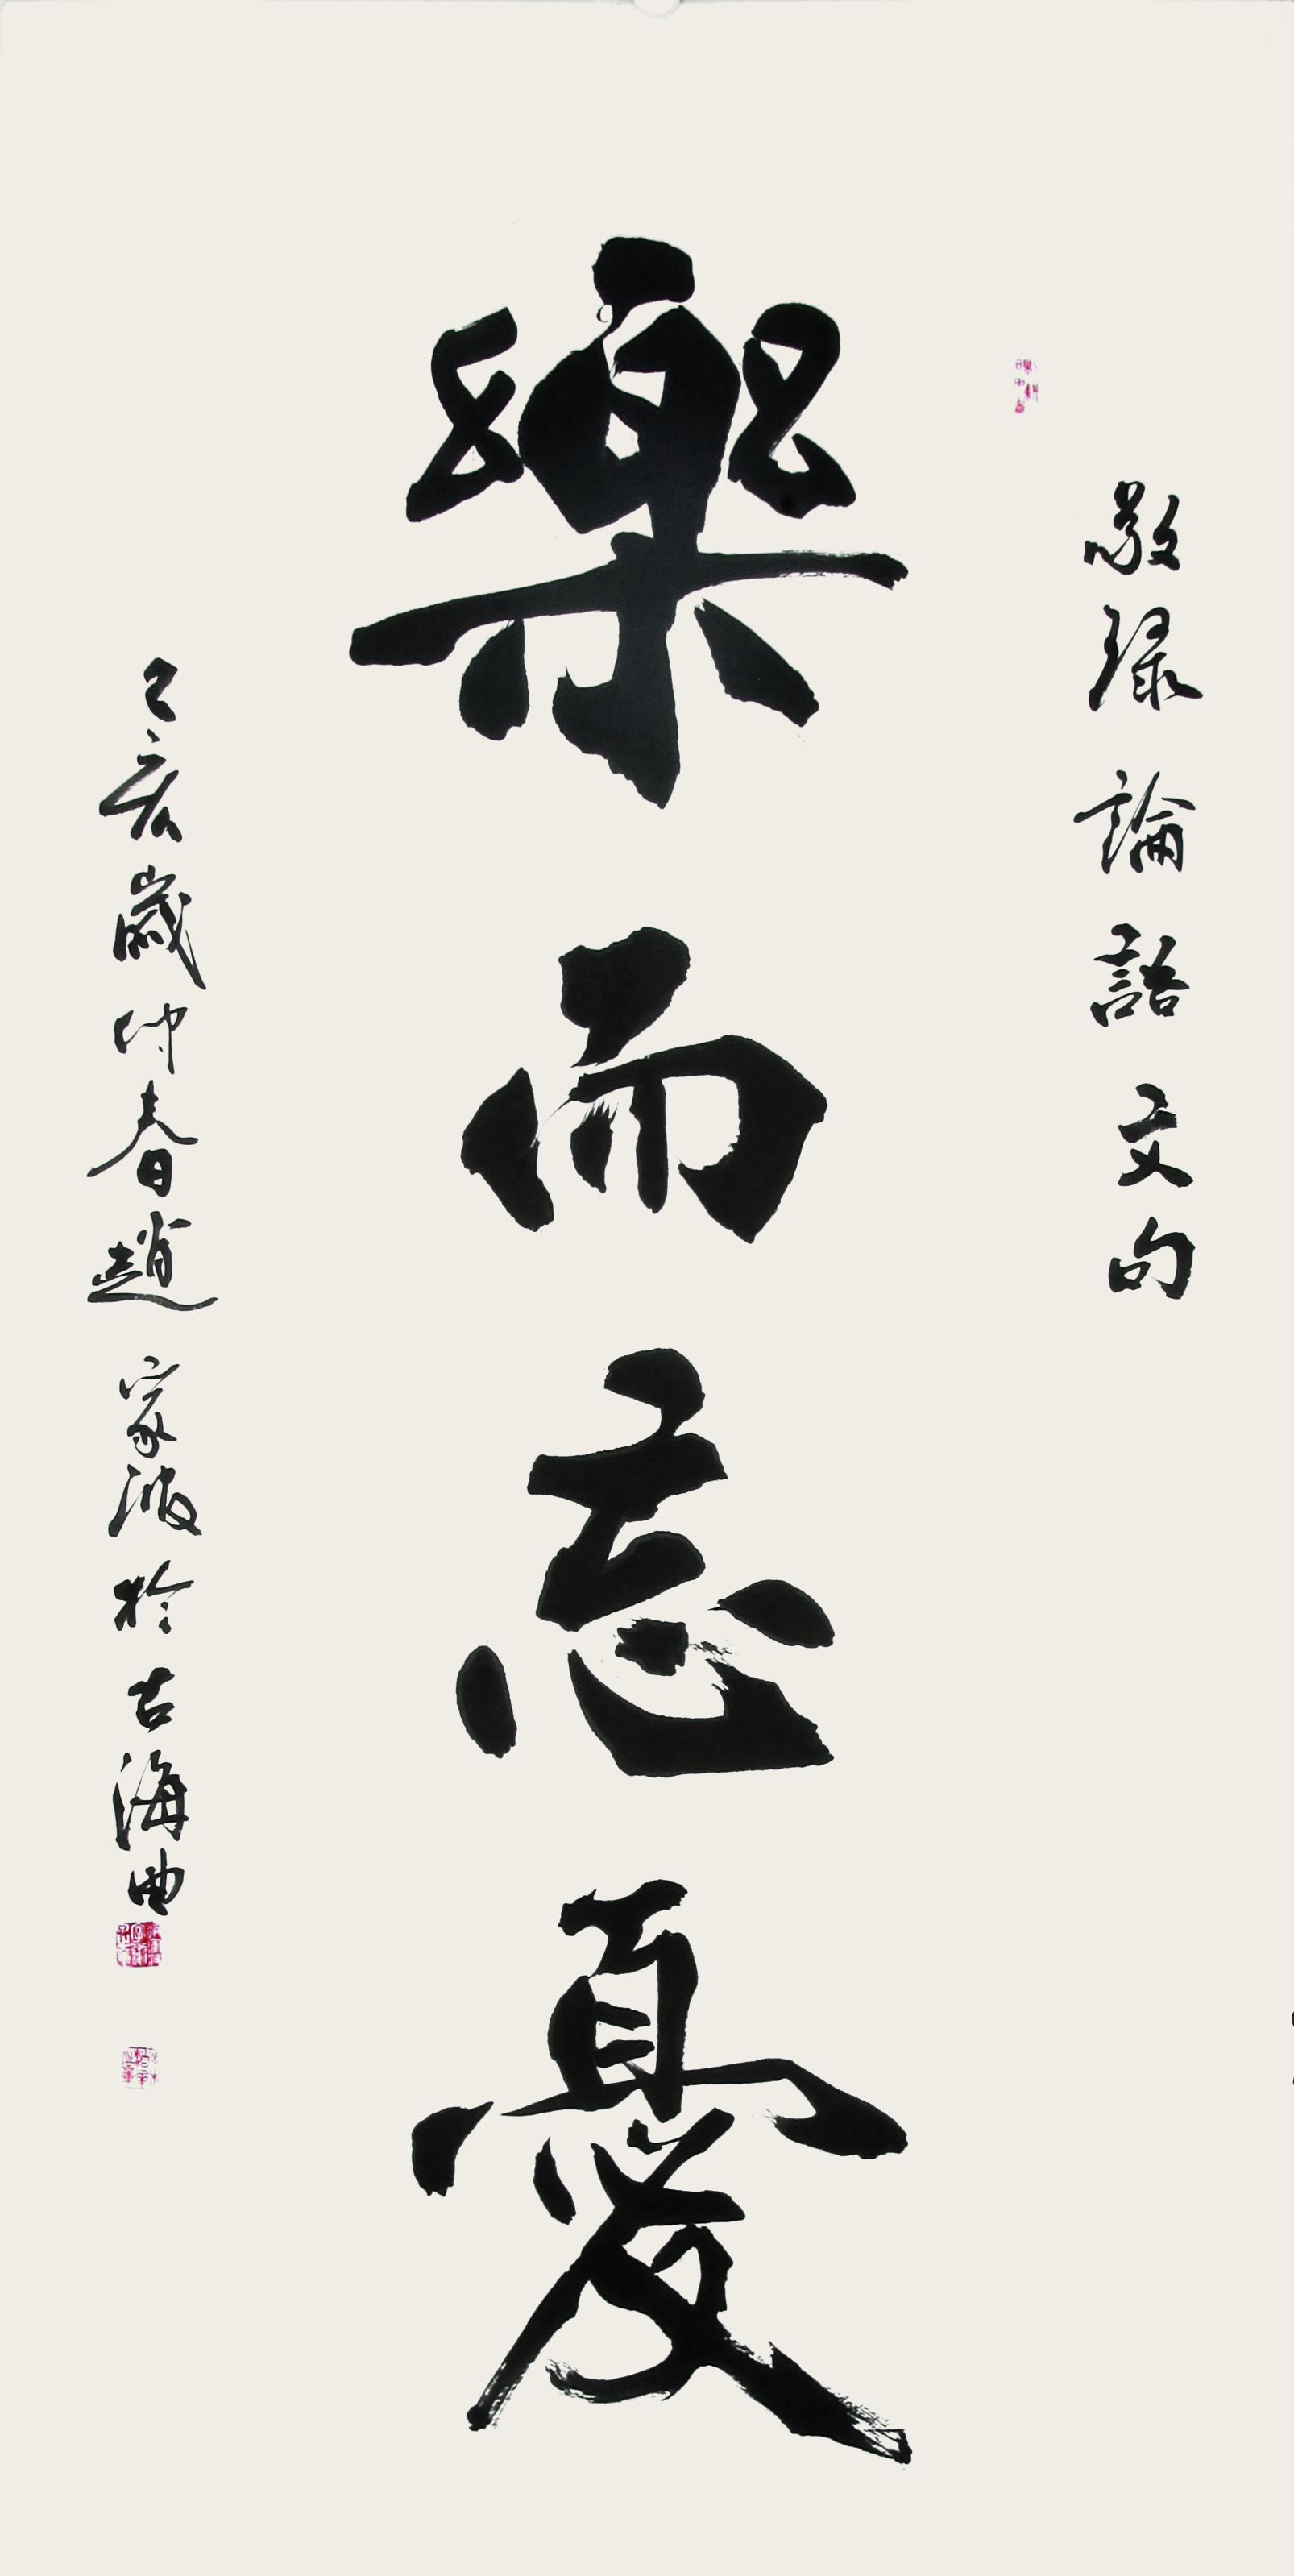 敬録論語文句
樂而忘憂
己亥歲仲春趙家波於古海曲